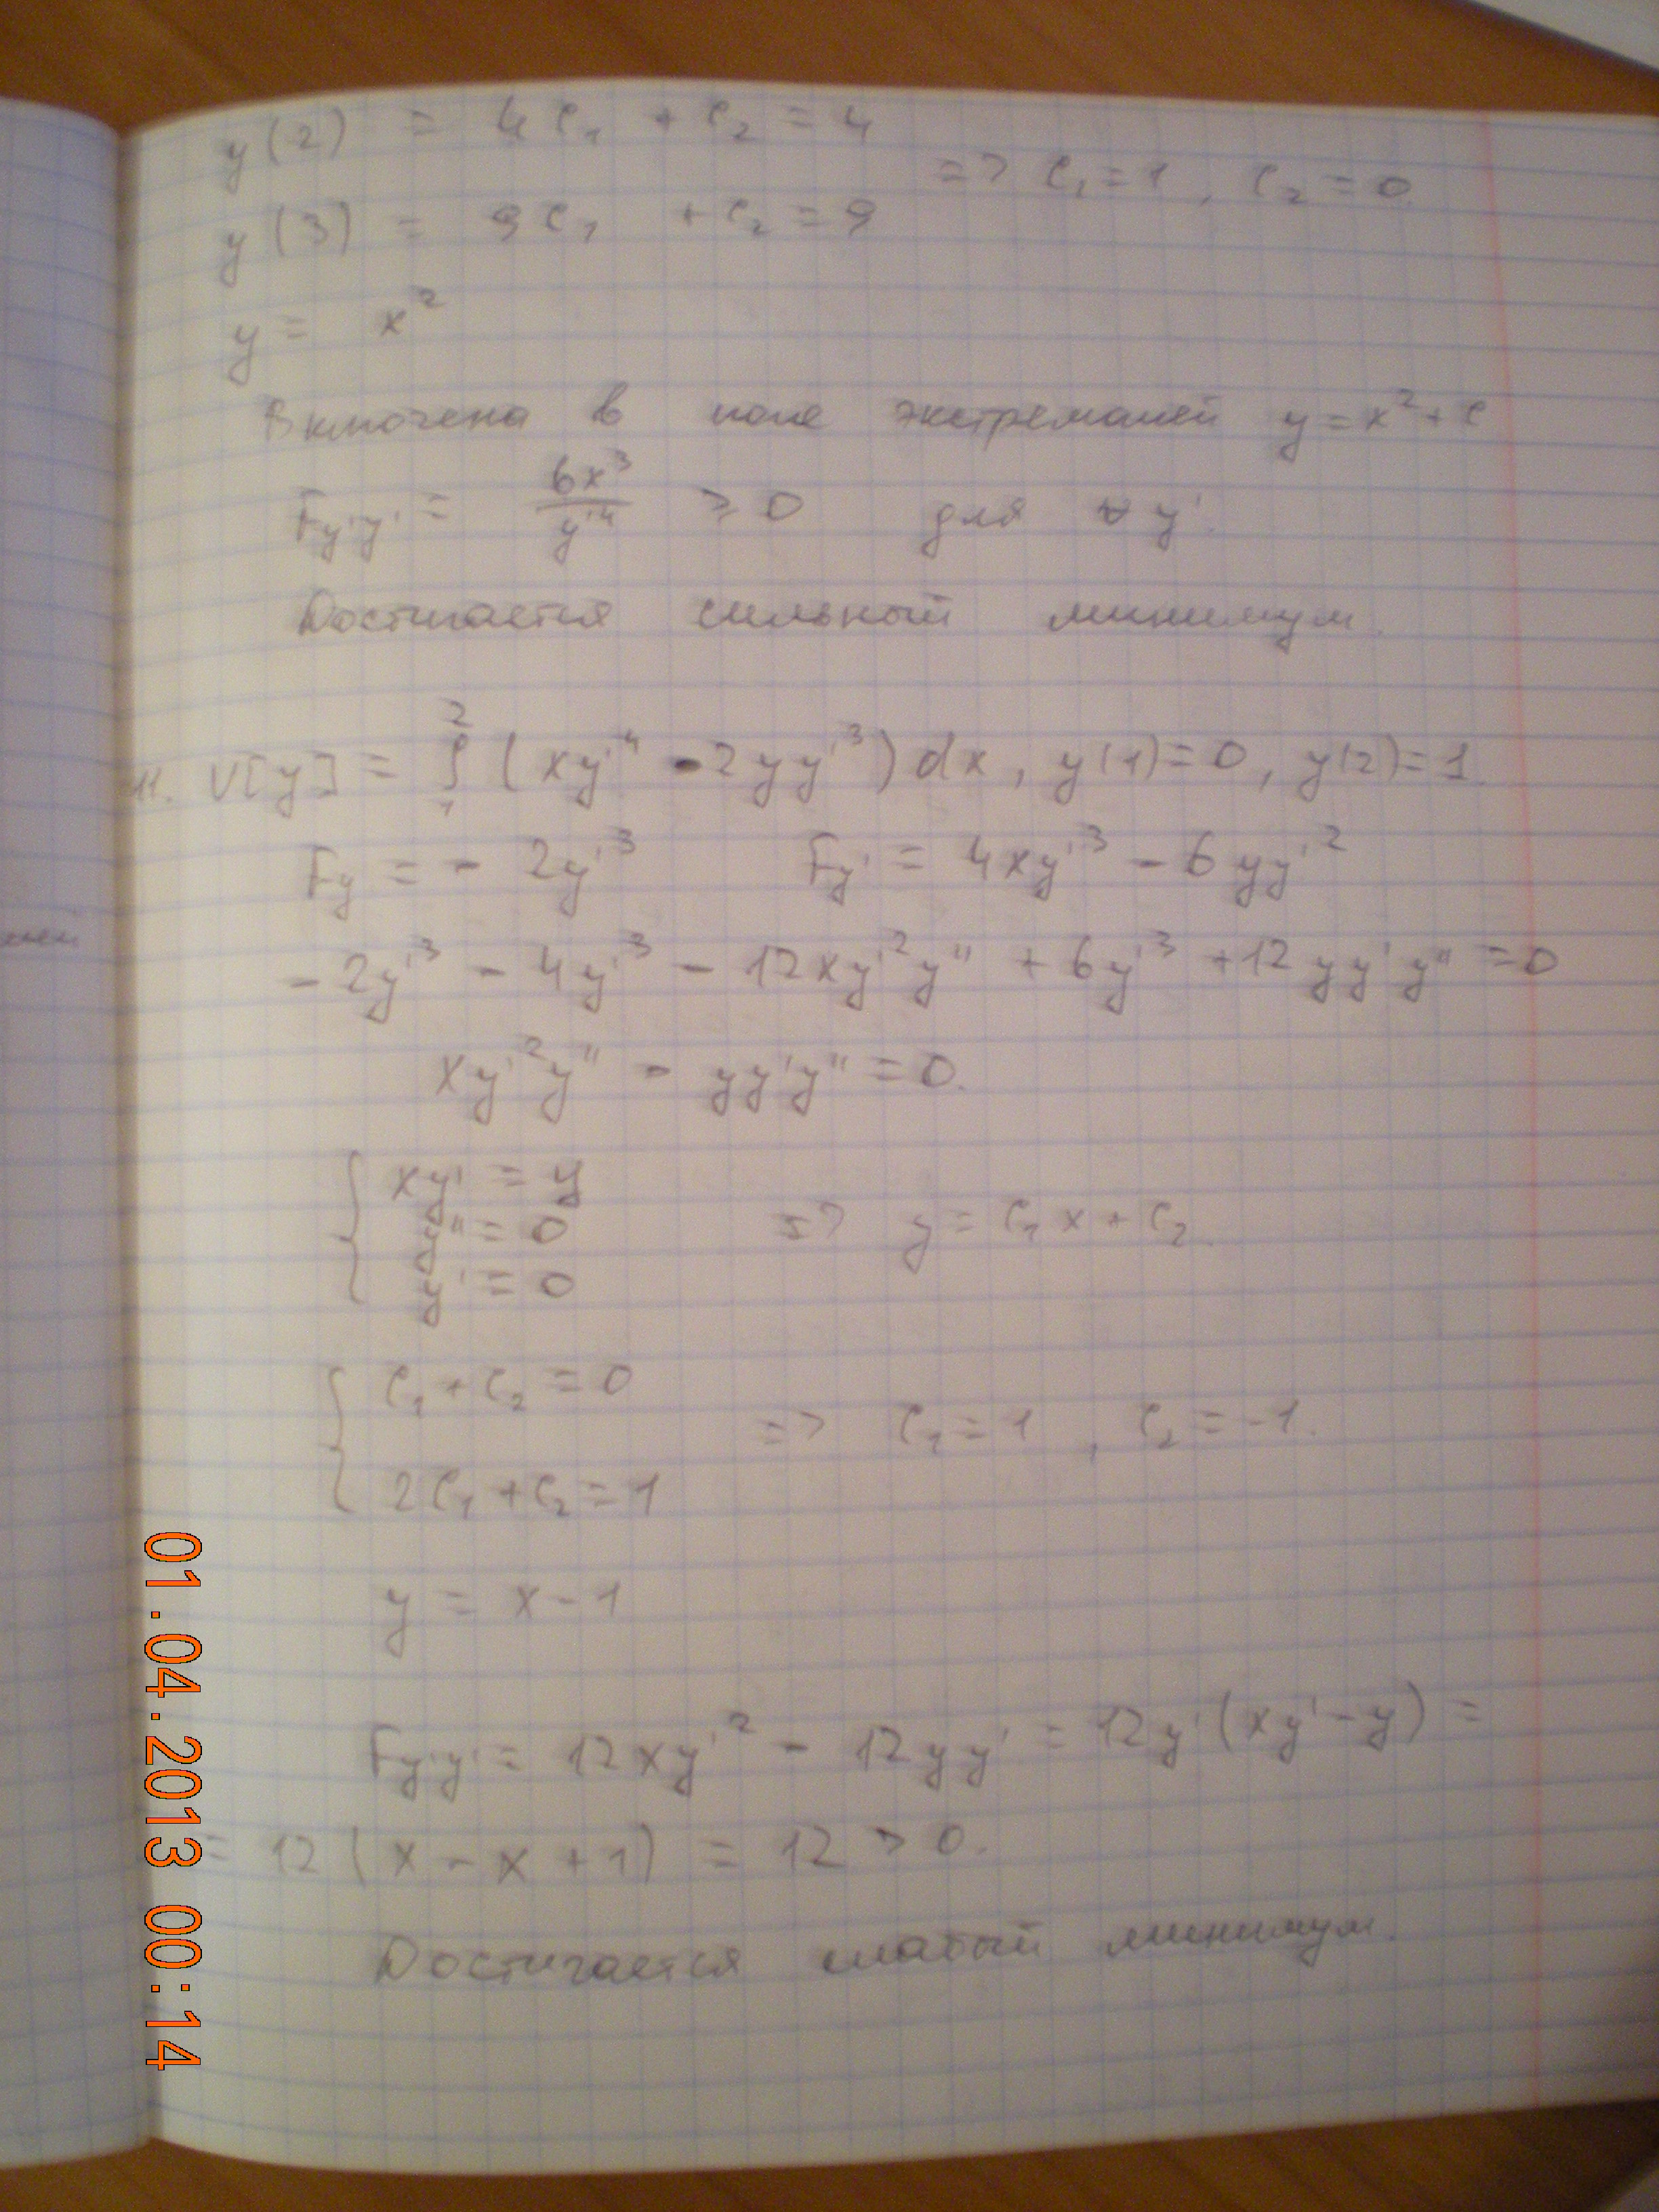 y(2) = 4C₁ + C₂ = 4
=> C₁ = 1, C₂ = 0
y(3) = 9C₁ + C₂ = 9
y = x²
Включена в поле экстремалей y = x² + C
Fy'y' = 6x³/y'⁴ ≥ 0 для ∀ y'.
Достигается сильный минимум.
11. V[y] = ∫₁² (xy'⁴ - 2yy'³)dx, y(1)=0, y(2)=1.
Fy = - 2y'³ Fy' = 4xy'³ - 6yy'²
- 2y'³ - 4y'³ - 12xy'²y'' + 6y'³ + 12yy'y'' = 0
xy'²y'' - yy'y'' = 0.
{ xy' = y
y'' = 0 => y = C₁x + C₂.
y' = 0
{ C₁ + C₂ = 0
=> C₁ = 1, C₂ = -1.
2C₁ + C₂ = 1
y = x - 1
Fy'y' = 12xy'² - 12yy' = 12y'(xy' - y) =
= 12(x - x + 1) = 12 > 0.
Достигается слабый минимум.
01.04.2013 00:14